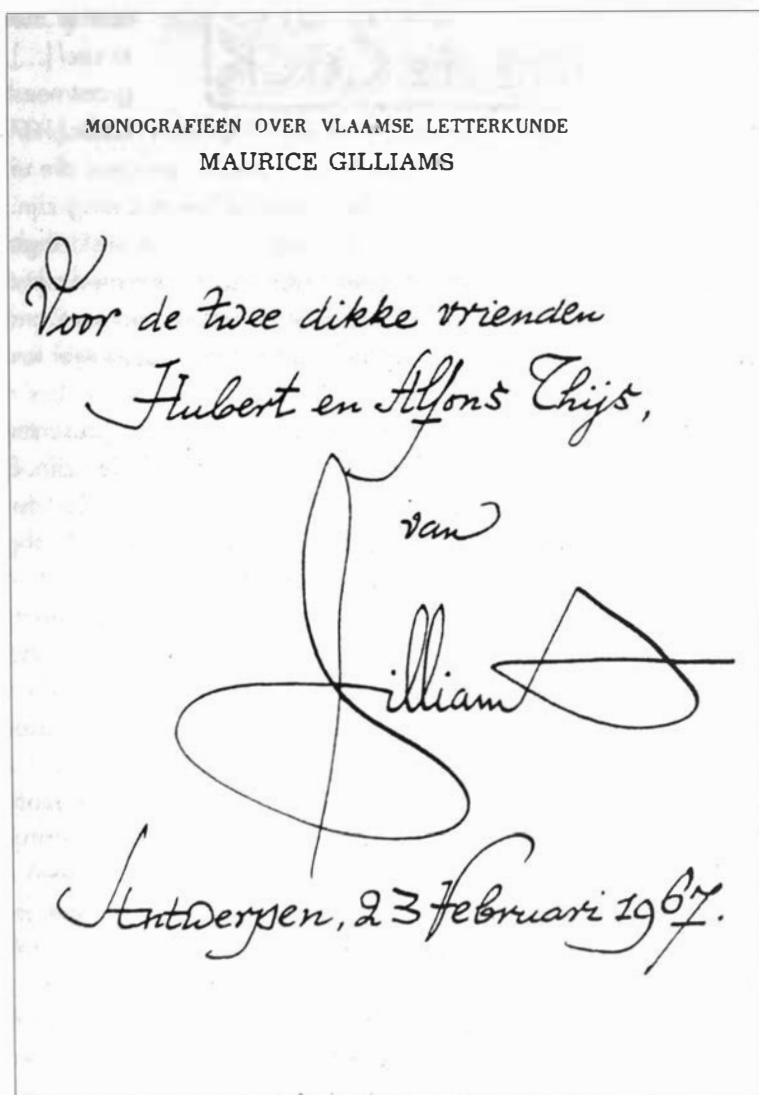 MONOGRAFIEËN OVER VLAAMSE LETTERKUNDE
MAURICE GILLIAMS
Voor de twee dikke vrienden
Hubert en Alfons Thijs,
van
Gilliams
Antwerpen, 23 februari 1967.